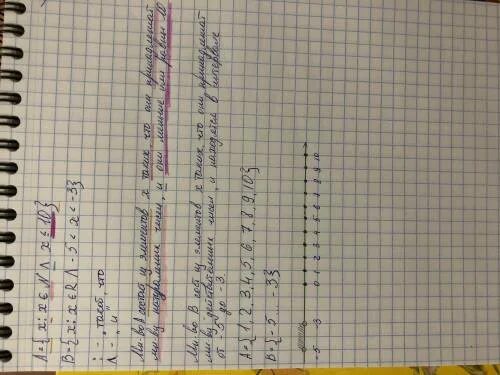 A={x: x∈N Λ x ≤ 10}
B={x: x∈R Λ -5 < x < -3}
: - „такой, что
Λ - „и"
Мн-во A состоит из элементов x таких, что они принадлежат
мн-ву натуральных чисел, и они меньше или равны 10
Мн-во B сост из элементов x таких, что они принадлежат
мн-ву действительных чисел, и находятся в интервале
от -5 до -3.
A={1, 2, 3, 4, 5, 6, 7, 8, 9, 10}
B={-5 ... -3}
-5 -3 0 1 2 3 4 5 6 7 8 9 10